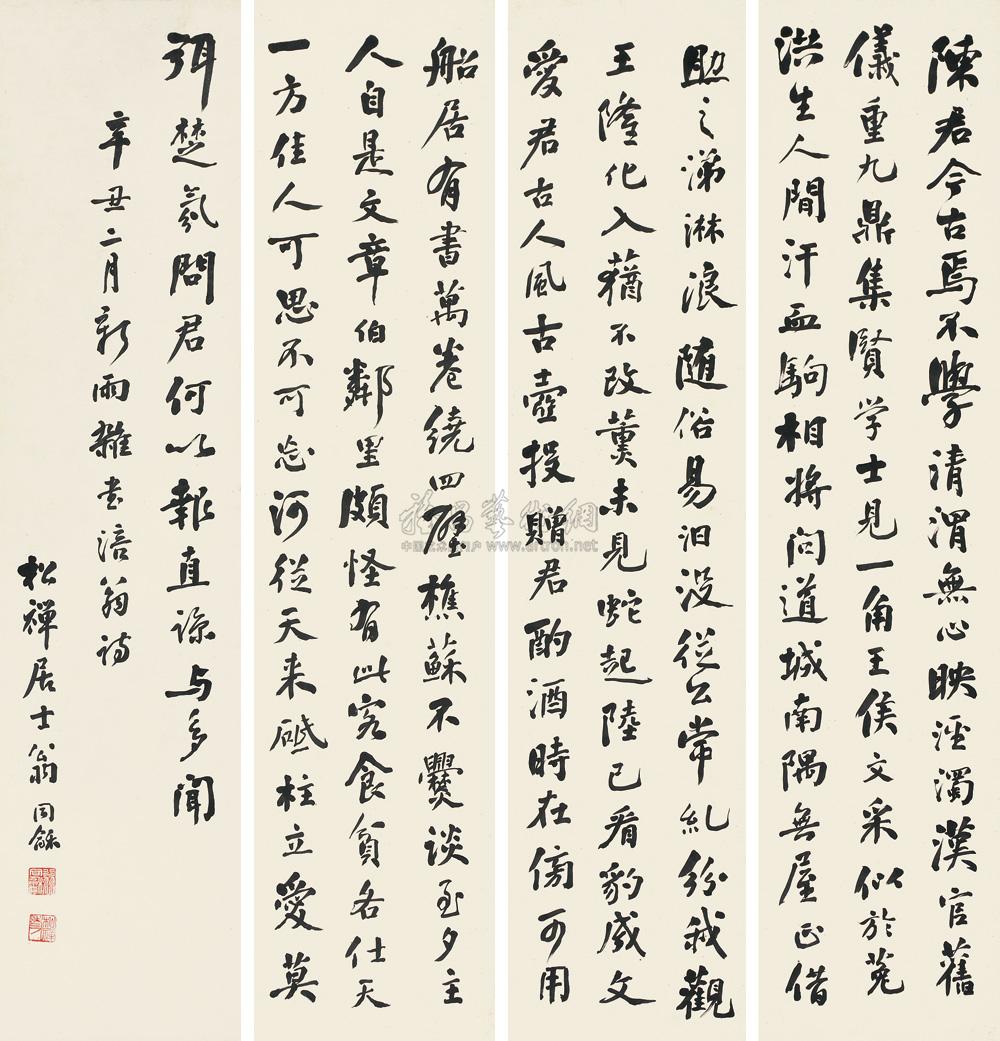 陳君今古焉不學清渭無心映涇濁漢官舊
儀重九鼎集賢学士見一角王侯文采似於菟
洪生人間汗血駒相將问道城南隅無屋正借
助之涕淋浪随俗易汩没從公常糺紛我觀
王隆化入蕕不改薰未見蛇起陸已看豹成文
愛君古人風古壺投贈君酌酒時在傍可用
船居有書萬卷繞四壁樵蘇不爨谈至夕主
人自是文章伯鄰里頗怪有此客食貧各仕天
一方佳人可思不可忘河從天来砥柱立愛莫
弭楚氛問君何以報直諒与多聞
辛丑二月新雨雜书涪翁诗
松禅居士翁同龢
www.artron.net